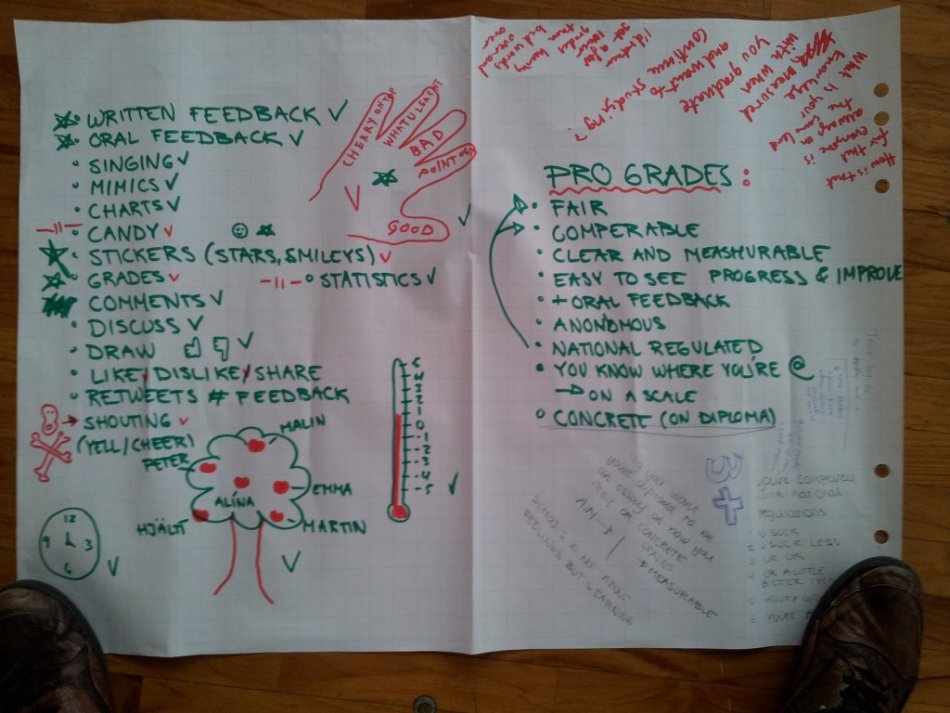 WRITTEN FEEDBACK
ORAL FEEDBACK
SINGING
MIMICS
CHARTS
CANDY
STICKERS (STARS, SMILEYS)
GRADES
STATISTICS
COMMENTS
DISCUSS
DRAW
LIKE/DISLIKE/SHARE
RETWEETS # FEEDBACK
SHOUTING
(YELL/CHEER)
CHERRY ON TOP
WHAT U LEARNT
BAD
POINT OUT
GOOD
MALIN
PETER
EMMA
ALÍNA
HJÄLTI
MARTIN
5
4
3
2
1
0
-1
-2
-3
-4
-5
12
9
3
6
PRO GRADES:
FAIR
COMPERABLE
CLEAR AND MEASHURABLE
EASY TO SEE PROGRESS & IMPROVE
+ ORAL FEEDBACK
ANONYMOUS
NATIONAL REGULATED
YOU KNOW WHERE YOU'RE @
ON A SCALE
CONCRETE (ON DIPLOMA)
I'd rather
get a low
grade than
being
but words
over
What
knowledge
is your
measured
with when
you graduate
and want to
continue studying?
How is that
for that
everyone is
always on
the same level
3+
Do you want
your diploma to be
an essay on how you
feel or CONCRETE
GRADES
MEASURABLE
AIM
SCHOOL IS NOT ABOUT
FEELINGS, BUT LEARNING
you're compared
with national
regulations
1 U SUCK
2 U SUCK LESS
3 UR OK
4 UR A LITTLE
BETTER
5 YOU'RE
6 YOU'RE